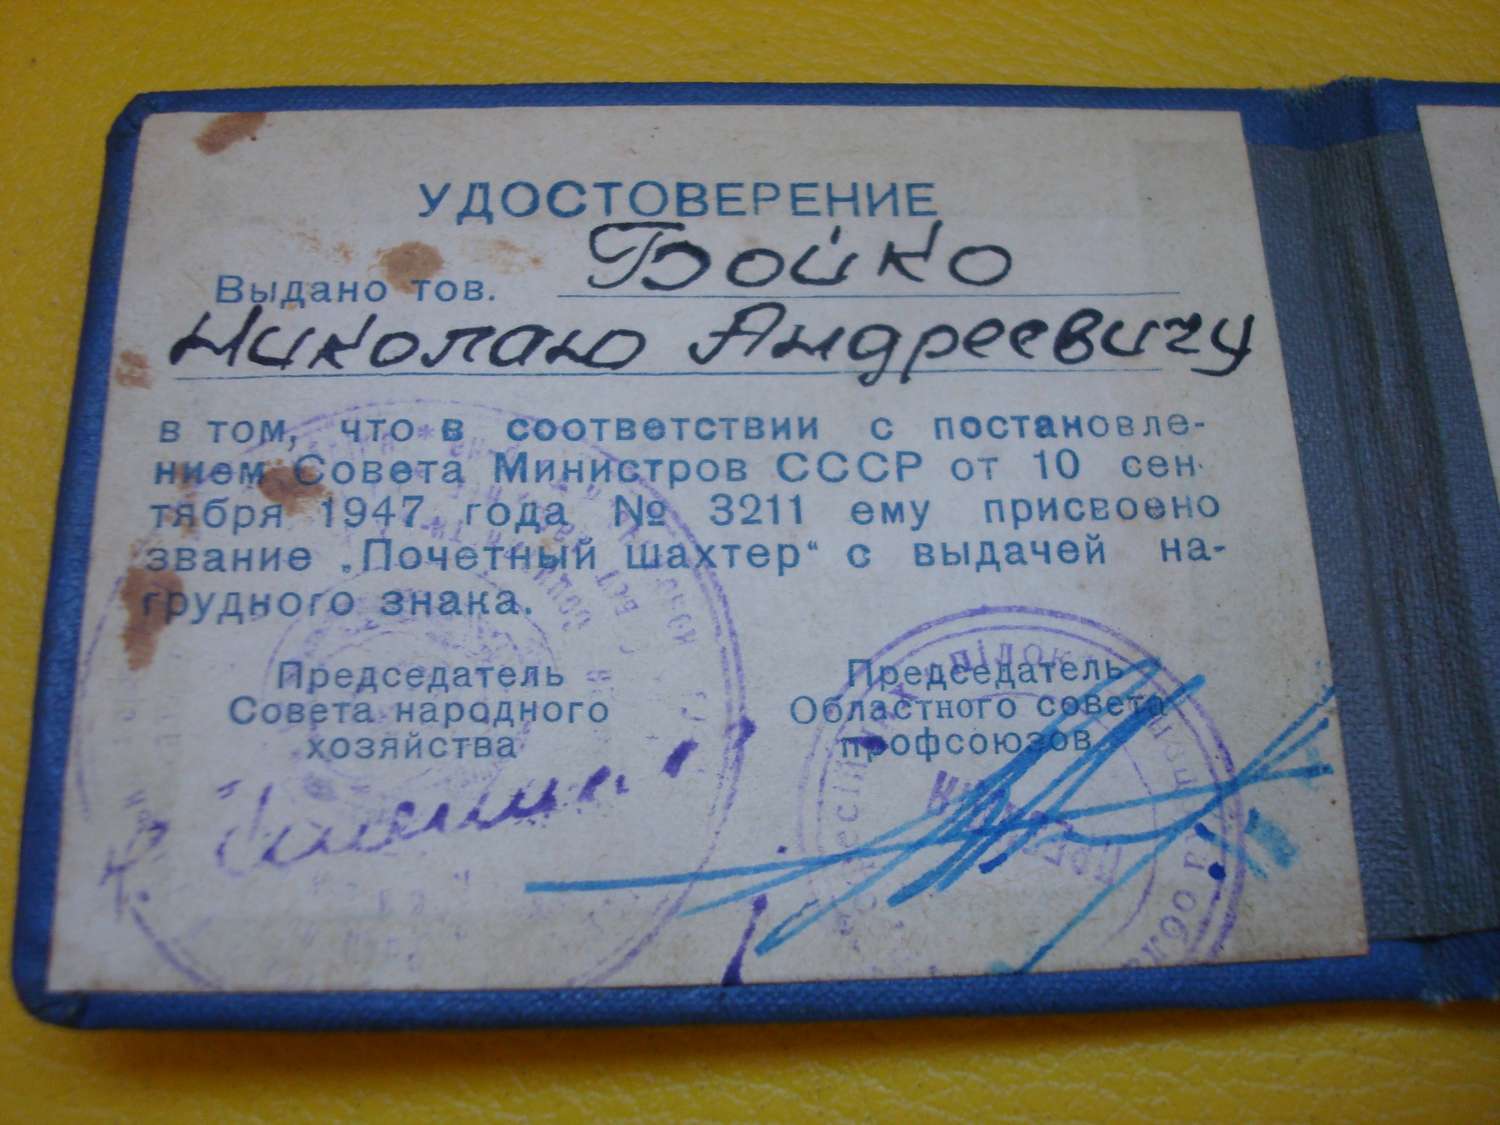 УДОСТОВЕРЕНИЕ
Выдано тов. Бойко
Николаю Андреевичу
в том, что в соответствии с постановле-
нием Совета Министров СССР от 10 сен-
тября 1947 года № 3211 ему присвоено
звание „Почетный шахтер“ с выдачей на-
грудного знака.
Председатель
Совета народного
хозяйства
Председатель
Областного совета
профсоюзов